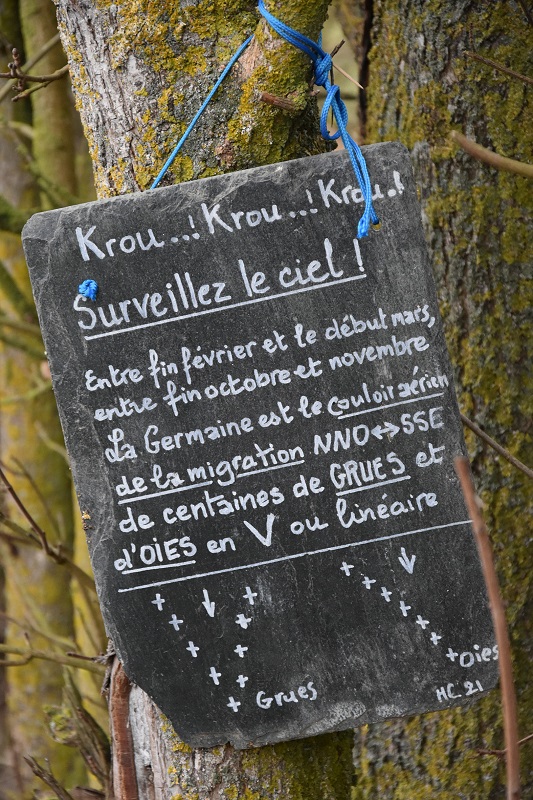 Krou...! Krou...! Krou..!
Surveillez le ciel !
Entre fin février et le début mars,
entre fin octobre et novembre
La Germaine est le couloir aérien
de la migration NNO↔SSE
de centaines de GRUES et
d'OIES en V ou linéaire
Grues
Oies
HC. 21